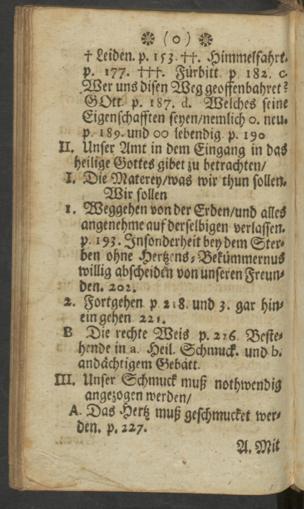 ❀ ( o ) ❀
† Leiden. p. 153. ††. Himmelfahrt.
p. 177. †††. Fürbitt. p. 182. c.
Wer uns disen Weg geoffenbahret?
GOtt. p. 187. d. Welches seine
Eigenschafften seyen/nemlich o. neu.
p. 189. und oo lebendig. p. 190
II. Unser Amt in dem Eingang in das
heilige Gottes gibet zu betrachten/
I. Die Materey/was wir thun sollen.
Wir sollen
1. Weggehen von der Erden/und alles
angenehme auf derselbigen verlassen.
p. 193. Insonderheit bey dem Ster-
ben ohne Hertzens-Bekümmernus
willig abscheiden von unseren Freun-
den. 202.
2. Fortgehen p 218. und 3. gar hin-
ein gehen. 221.
B Die rechte Weis p. 226. Beste-
hende in a. Heil. Schmuck. und b.
andächtigem Gebätt.
III. Unser Schmuck muß nothwendig
angezogen werden/
A. Das Hertz muß geschmucket wer-
den. p. 227.
A. Mit